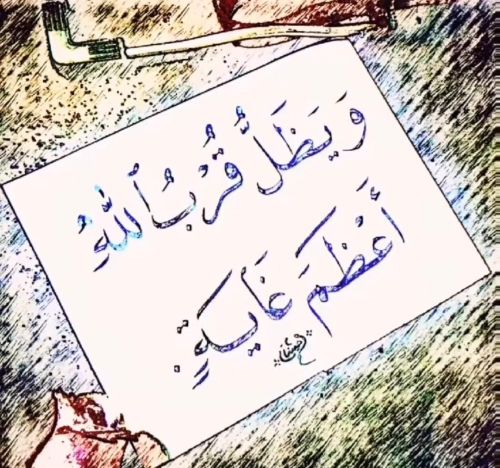 وَيَظَلُّ قُرْبُ ٱللهِ
أَعْظَمَ غَايَةٍ.